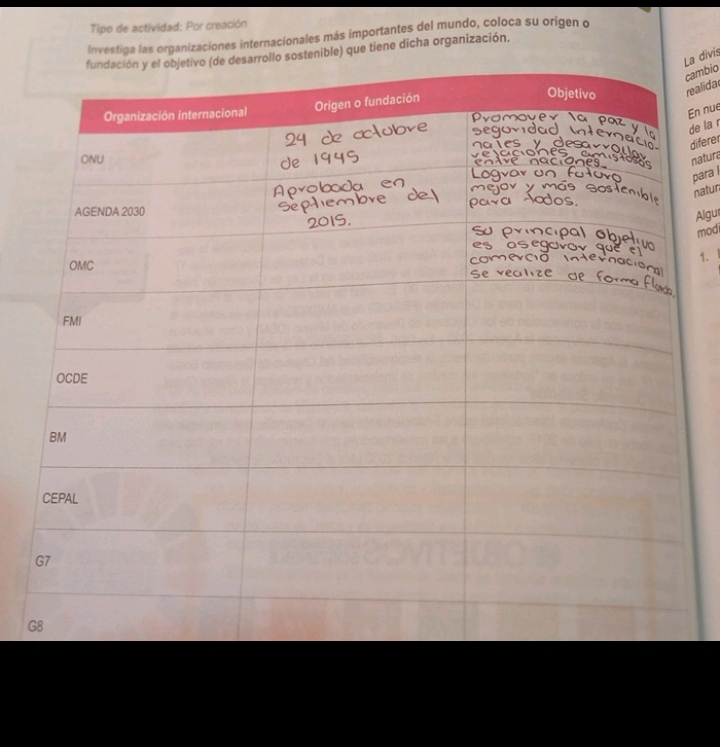 Tipo de actividad: Por creación
Investiga las organizaciones internacionales más importantes del mundo, coloca su origen o
fundación y el objetivo (de desarrollo sostenible) que tiene dicha organización.
Organización internacional
Origen o fundación
Objetivo
ONU
24 de octubre
de 1945
Promover la paz y la
seguridad internacio-
nales y desarrollar
relaciones amistosas
entre naciones.
AGENDA 2030
Aprobada en
Septiembre del
2015.
Lograr un futuro
mejor y más sostenible
para todos.
OMC
su principal objetivo
es asegurar que el
comercio internacional
se realize de forma fluida.
FMI
OCDE
BM
CEPAL
G7
G8
La divis
cambio
realida
En nue
de la
diferen
natura
para l
natur
Algu
modi
1.